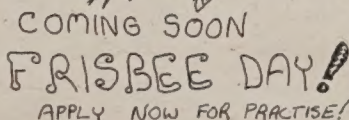 COMING SOON
FRISBEE DAY!
APPLY NOW FOR PRACTISE!